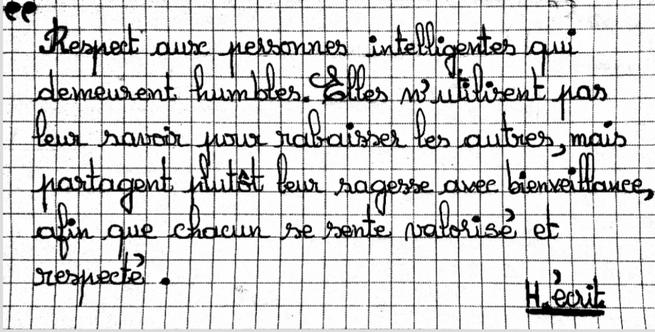 “
Respect aux personnes intelligentes qui
demeurent humbles. Elles n'utilisent pas
leur savoir pour rabaisser les autres, mais
partagent plutôt leur sagesse avec bienveillance,
afin que chacun se sente valorisé et
respecté.
H. écrit